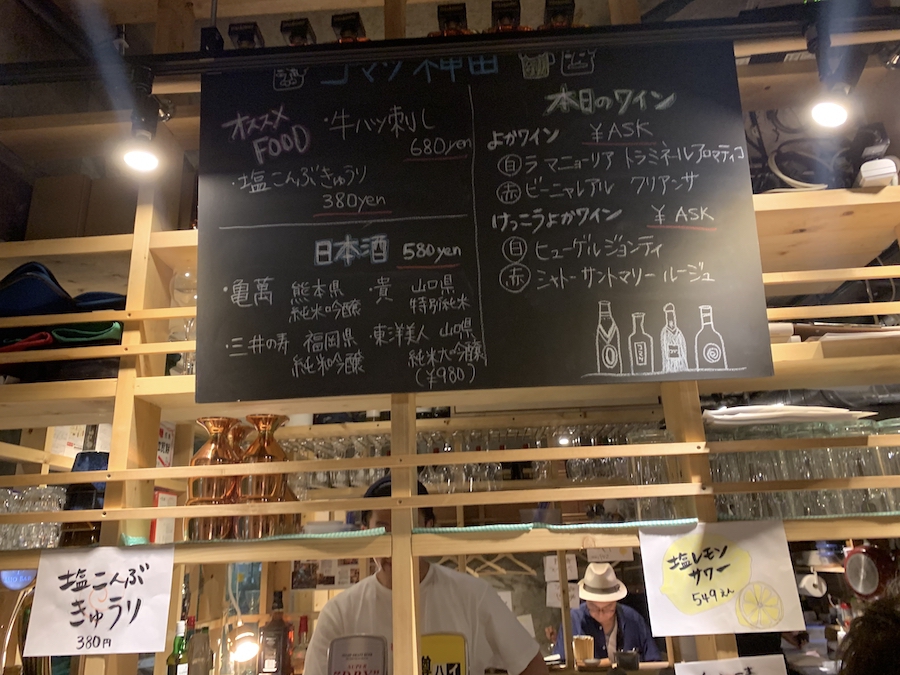 コマツ神田
オススメ
FOOD
・牛ハツ刺し
680yen
・塩こんぶきゅうり
380yen
日本酒 580yen
・亀萬 熊本県
純米吟醸
・貴 山口県
特別純米
・三井の寿 福岡県
純米吟醸
・東洋美人 山口県
純米大吟醸
(¥980)
本日のワイン
よかワイン ¥ASK
白 ラ マニョーリア トラミネールアロマティコ
赤 ビーニャレアル クリアンサ
けっこうよかワイン ¥ASK
白 ヒューゲルジョンティ
赤 シャトーサントマリー ルージュ
塩こんぶ
きゅうり
380円
塩レモン
サワー
549えん
SUPER
"DRY"